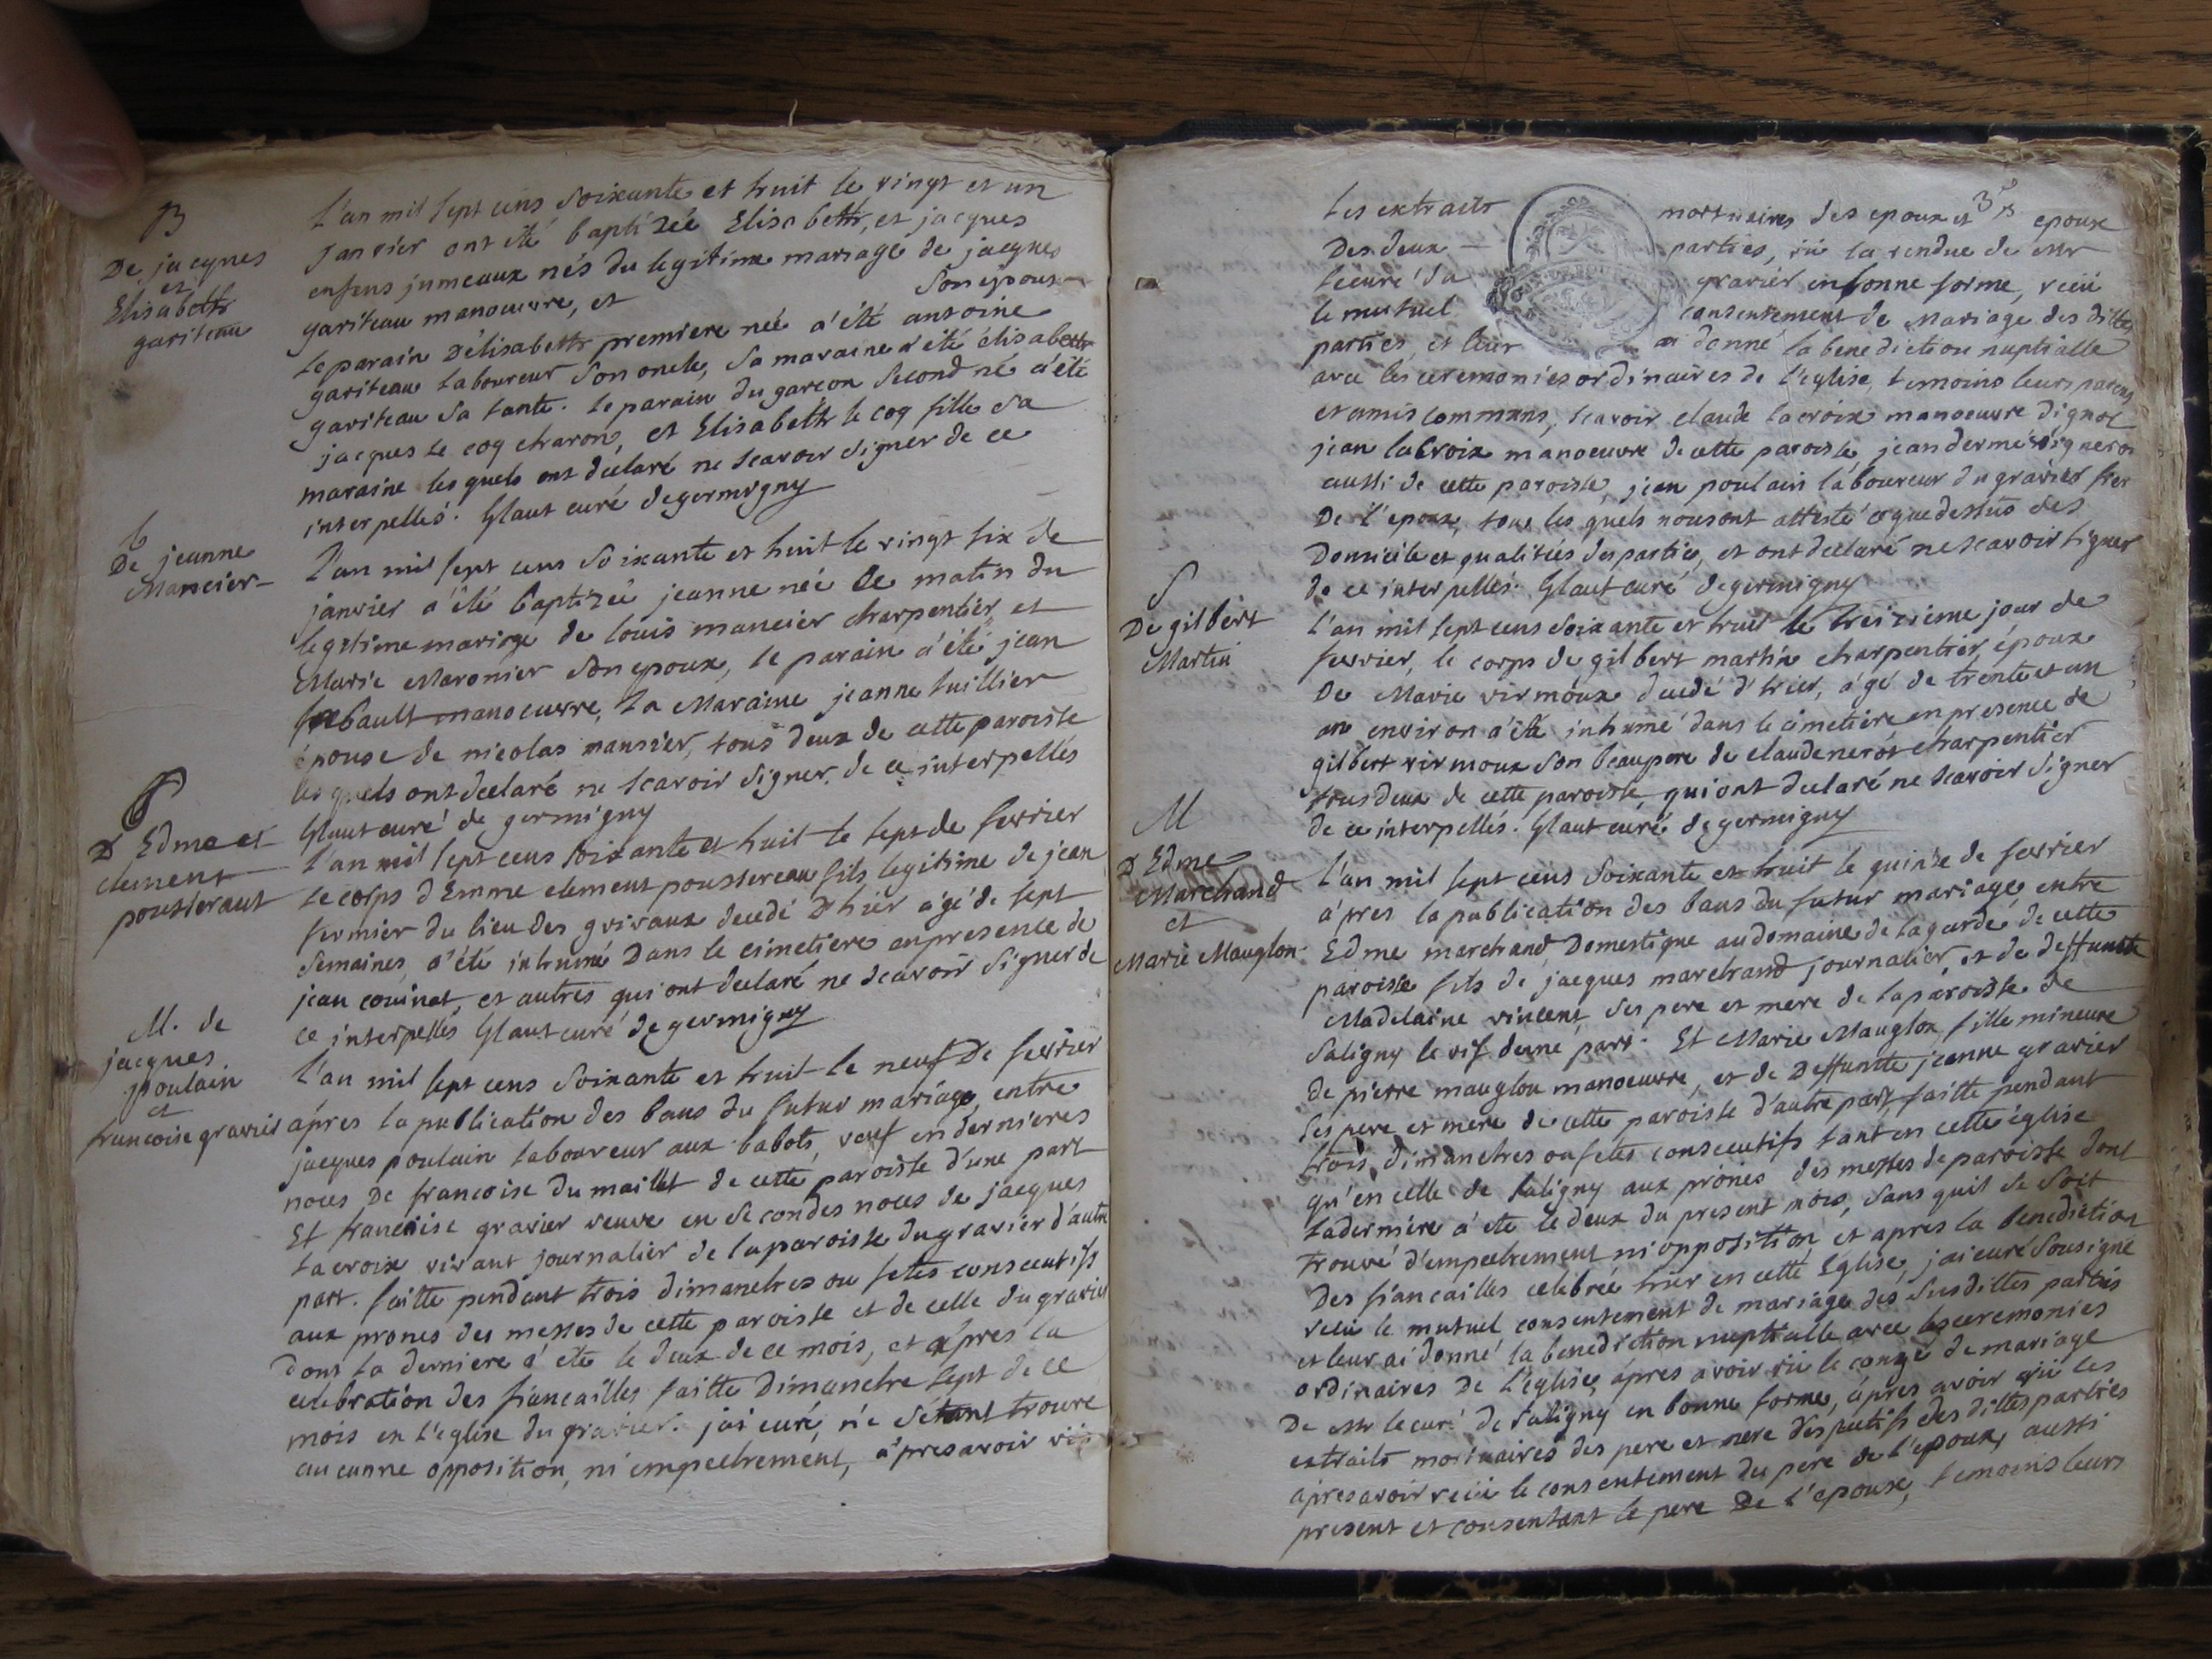 B
De jacques
et
Elisabeth
gariteau
L'an mil sept cens soixante et huit le vingt et un
janvier ont été baptizée Elisabeth, et jacques
enfens jumeaux nés du legitime mariage de jacques
gariteau manoeuvre, et son epouse
le parain d'élisabeth premiere neé a été antoine
gariteau laboureur son oncle, sa maraine a été élisabeth
gariteau sa tante. le parain du garcon second né a été
jacques le coq charon, et Elisabeth le coq fille sa
maraine les quels ont déclaré ne scavoir signer de ce
interpellés. Glaut curé de germigny
b
De jeanne
Mancier
L'an mil sept cens soixante et huit le vingt six de
janvier a été baptizée jeanne née ce matin du
legitime mariage de louis mancier charpentier et
Marie Maronier son epoux, le parain a été jean
manoeuvre, la Maraine jeanne tuillier
épouse de nicolas mansier, tous deux de cette paroisse
les quels ont declaré ne scavoir signer de ce interpellés
Glaut curé de germigny
D Edme et
clement
pousseraut
L'an mil sept cens soixante et huit le sept de fevrier
le corps d'Emme clement poussereau fils legitime de jean
fermier du lieu des grivaux decedé d'hier agé de sept
semaines a été inhumé Dans le cimetiere en presence de
jean couinat, et autres qui ont declaré ne scavoir signer de
ce interpellés Glaut curé de germigny
M. de
jacques
poulain
et
francoise gravier
L'an mil sept cens soixante et huit le neuf De fevrier
après la publication des bans du futur mariage entre
jacques poulain laboureur aux babots, veuf en dernieres
noces De francoise Dumaillet de cette paroisse d'une part
Et francoise gravier veuve en secondes noces de jacques
lacroix vivant journalier de la paroisse du gravier d'autre
part. faitte pendant trois dimanches ou fetes consecutifs
aux prones des messes de cette paroisse et de celle du gravier
dont la derniere a été le deux de ce mois, et après la
celebration des fiancailles faitte Dimanche sept de ce
mois en l'eglise du gravier. jai curé, ne s'étant trouvé
aucunne opposition, ni empechement, après avoir vû
les extraits mortuaires des epoux et epouse
Des deux parties, vû la rendue de Mr
le curé du gravier en bonne forme, reçû
le mutuel consentement de Mariage des dittes
parties, et leur ai donné la benediction nuptialle
avec les ceremonies ordinaires de l'eglise, temoins leurs parens
et amis communs, scavoir claude lacroix manoeuvre dignol
jean lacroix manoeuvre de cette paroisse, jean dermé vigneron
aussi de cette paroisse, jean poulain laboureur du gravier frer
De l'epoux, tous les quels nous ont attesté ce que dessus des
Domicile et qualitiés des parties, et ont declaré ne scavoir signer
de ce interpellés. Glaut curé de germigny
S
De gilbert
Martin
L'an mil sept cens soixante et huit le treizieme jour de
fevrier, le corps de gilbert martin charpentier, époux
De Marie virmoux decedé d'hier, agé de trente et un
an environ a été inhumé dans le cimetiere en presence de
gilbert virmoux son beaupere de claude nerot charpentier
tous deux de cette paroisse, qui ont declaré ne scavoir signer
de ce interpellés. Glaut curé de germigny
M
D Edme
Marchand
et
Marie Mauglon
L'an mil sept cens soixante et huit le quinze de fevrier
après la publication des bans du futur mariage entre
Edme marchand Domestique au domaine de la garde de cette
paroisse fils de jacques marchand journalier, et de deffunte
Madelaine vincent, ses pere et mere de la paroisse de
Saligny le vif d'une part. Et Marie Mauglon fille mineure
de pierre mauglon manoeuvre, et de Deffuntte jeanne gravier
ses pere et mere de cette paroisse d'autre part, faitte pendant
trois dimanches ou fetes consecutifs tant en cette église
qu'en celle de saligny aux prônes des messes de paroisse dont
la derniere a été le deux du present mois, sans quil se soit
trouvé d'empechement ni opposition, et apres la benediction
Des fiancailles celebrée hier en cette Eglise, jai curé sousigné
reçû le mutuel consentement de mariage des susdittes parties
et leur ai donné la benediction nuptialle avec les ceremonies
ordinaires de l'église, après avoir vû le congé de mariage
De Mr le curé de saligny en bonne forme, après avoir vû les
extraits mortuaires des pere et mere respectifs des dittes parties
apres avoir reçû le consentement du pere de l'epoux, aussi
present et consentant le pere De l'epouse, temoins leurs